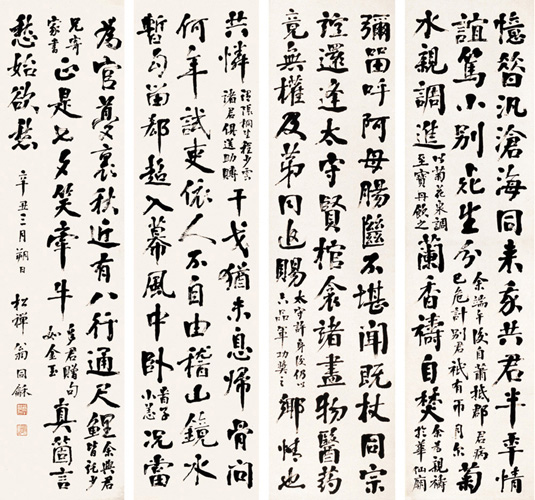 憶昔汎滄海同來我共君半年情
誼篤小別死生分余端午後自莆抵郡君病已危計別君祇有兩月尔菊
水親調進以菊花泉調至寶丹飲之蘭香禱自焚余曾親禱於華仙廟
彌留呼阿母腸斷不堪聞既杖同宗
誼還逢太守賢棺衾諸盡物醫藥
竟無權及第同追賜太守許身後仍以六品軍功獎之鄉情也
共憐諸君俱送助賻干戈猶未息歸骨問
何年試吏依人不自由稽山鏡水
暫勾留却超入幕風中卧況當
為官夢裏秋近有八行通尺鯉余與君皆託少
兄寄家書正是七夕笑牽牛多君贈句如金玉真箇言
愁始欲愁
辛丑三月朔日 松禪翁同龢